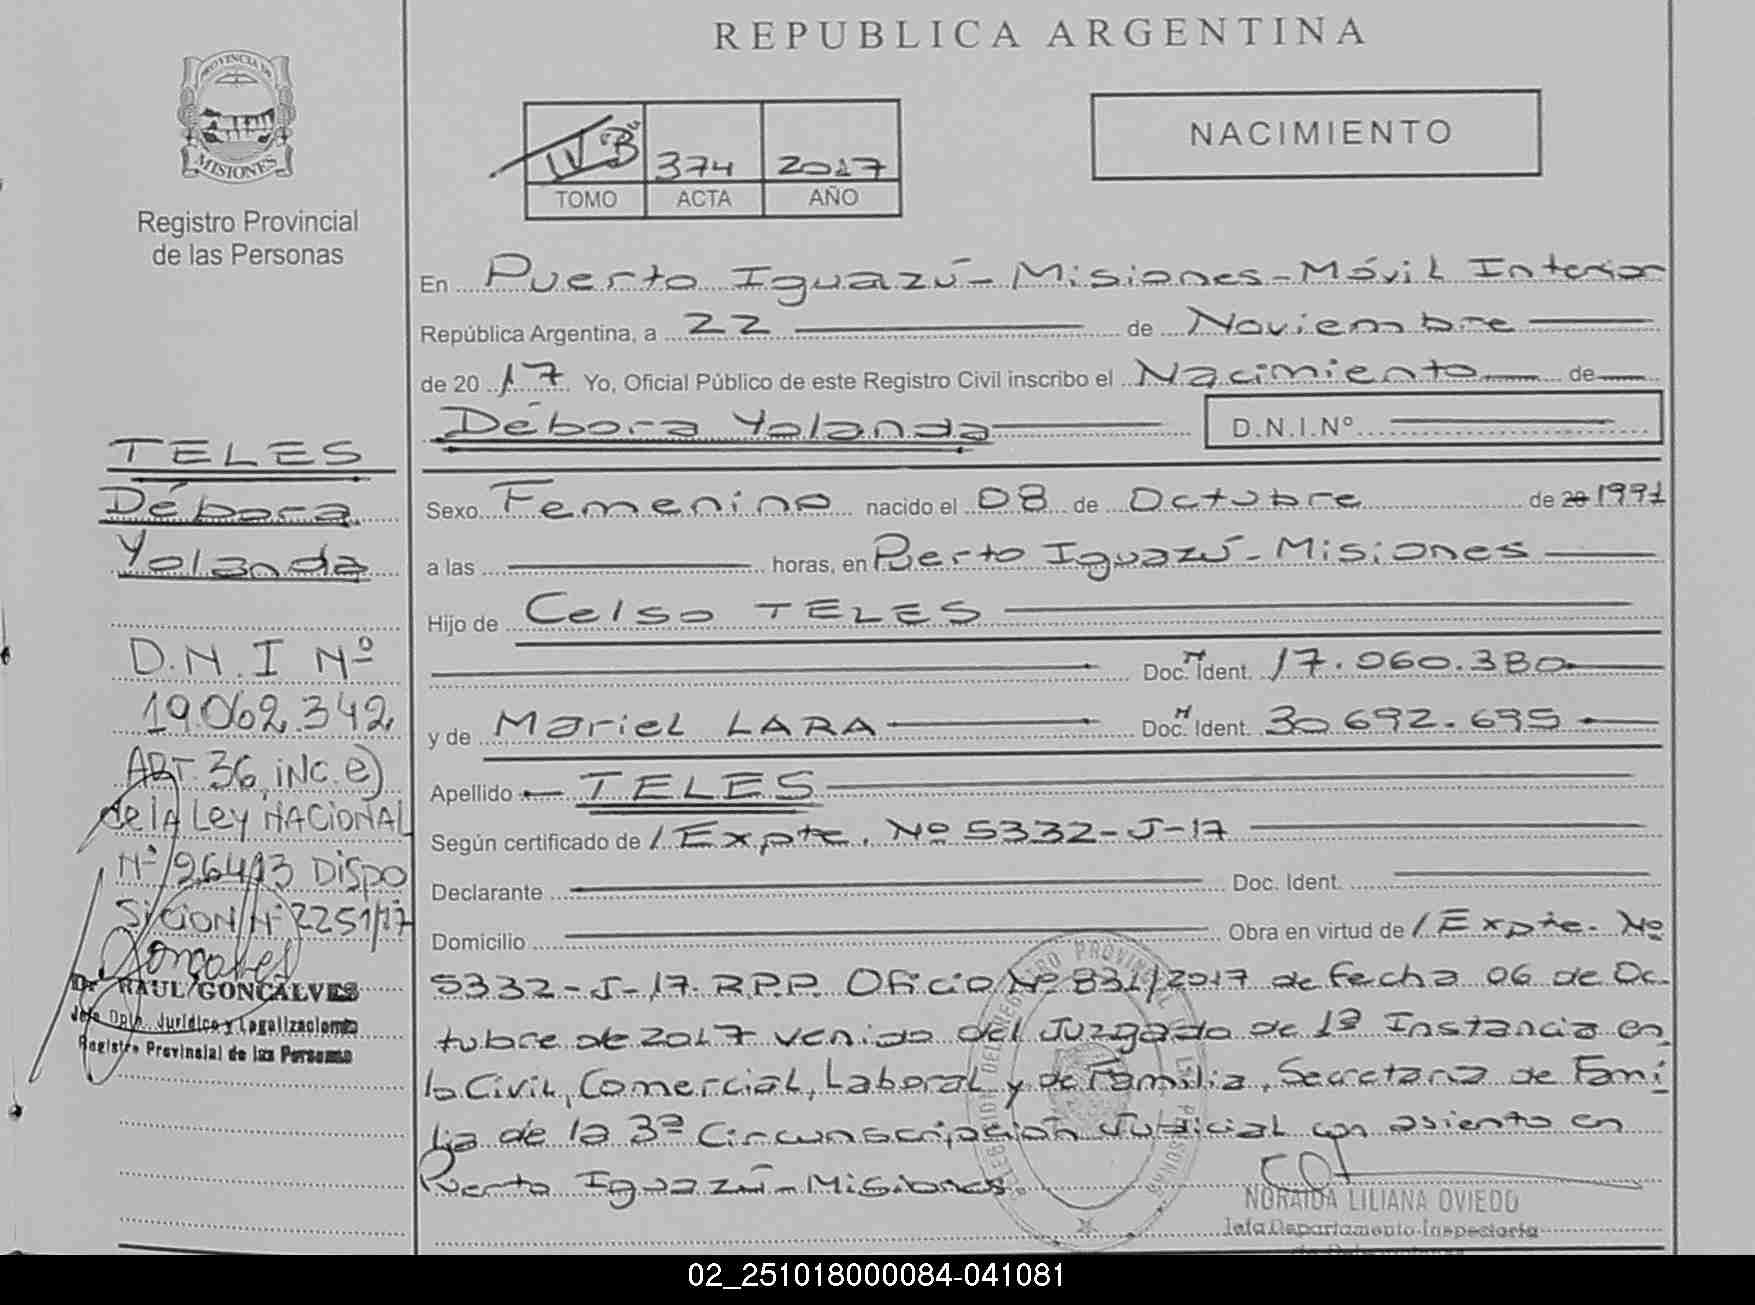 REPUBLICA ARGENTINA
PROVINCIA DE
MISIONES
Registro Provincial
de las Personas
374 2017
TOMO ACTA AÑO
NACIMIENTO
En Puerto Iguazú - Misiones - Móvil Interior
República Argentina, a 22 de Noviembre
de 2017 Yo, Oficial Público de este Registro Civil inscribo el Nacimiento de
Débora Yolanda D.N.I.Nº
Sexo Femenino nacido el 08 de Octubre de 20 1991
a las horas, en Puerto Iguazú - Misiones
Hijo de Celso TELES
Doc. M. Ident. 17.060.380
y de Mariel LARA Doc. M. Ident. 30.692.695
Apellido TELES
Según certificado de / Expte. Nº 5332-J-17
Declarante Doc. Ident.
Domicilio Obra en virtud de / Expte. Nº
5332-J-17. R.P.P. Oficio Nº 831/2017 de fecha 06 de Oc
tubre de 2017 venido del Juzgado de 1ª Instancia en
lo Civil, Comercial, Laboral y de Familia, Secretaria de Fami
lia de la 3ª Circunscripción Judicial con asiento en
Puerto Iguazú - Misiones
NORAIDA LILIANA OVIEDO
Jefa Departamento Inspectoria
TELES
Débora
Yolanda
D.N.I Nº
19.062.342
ART. 36, iNC. e)
de lA Ley NACiONAL
Nº 26413 Dispo
SiCiON Nº 2251/17
Dr. RAUL GONCALVES
Jefe Dpto. Jurídico y Legalizaciones
Registro Provincial de las Personas
02_251018000084-041081